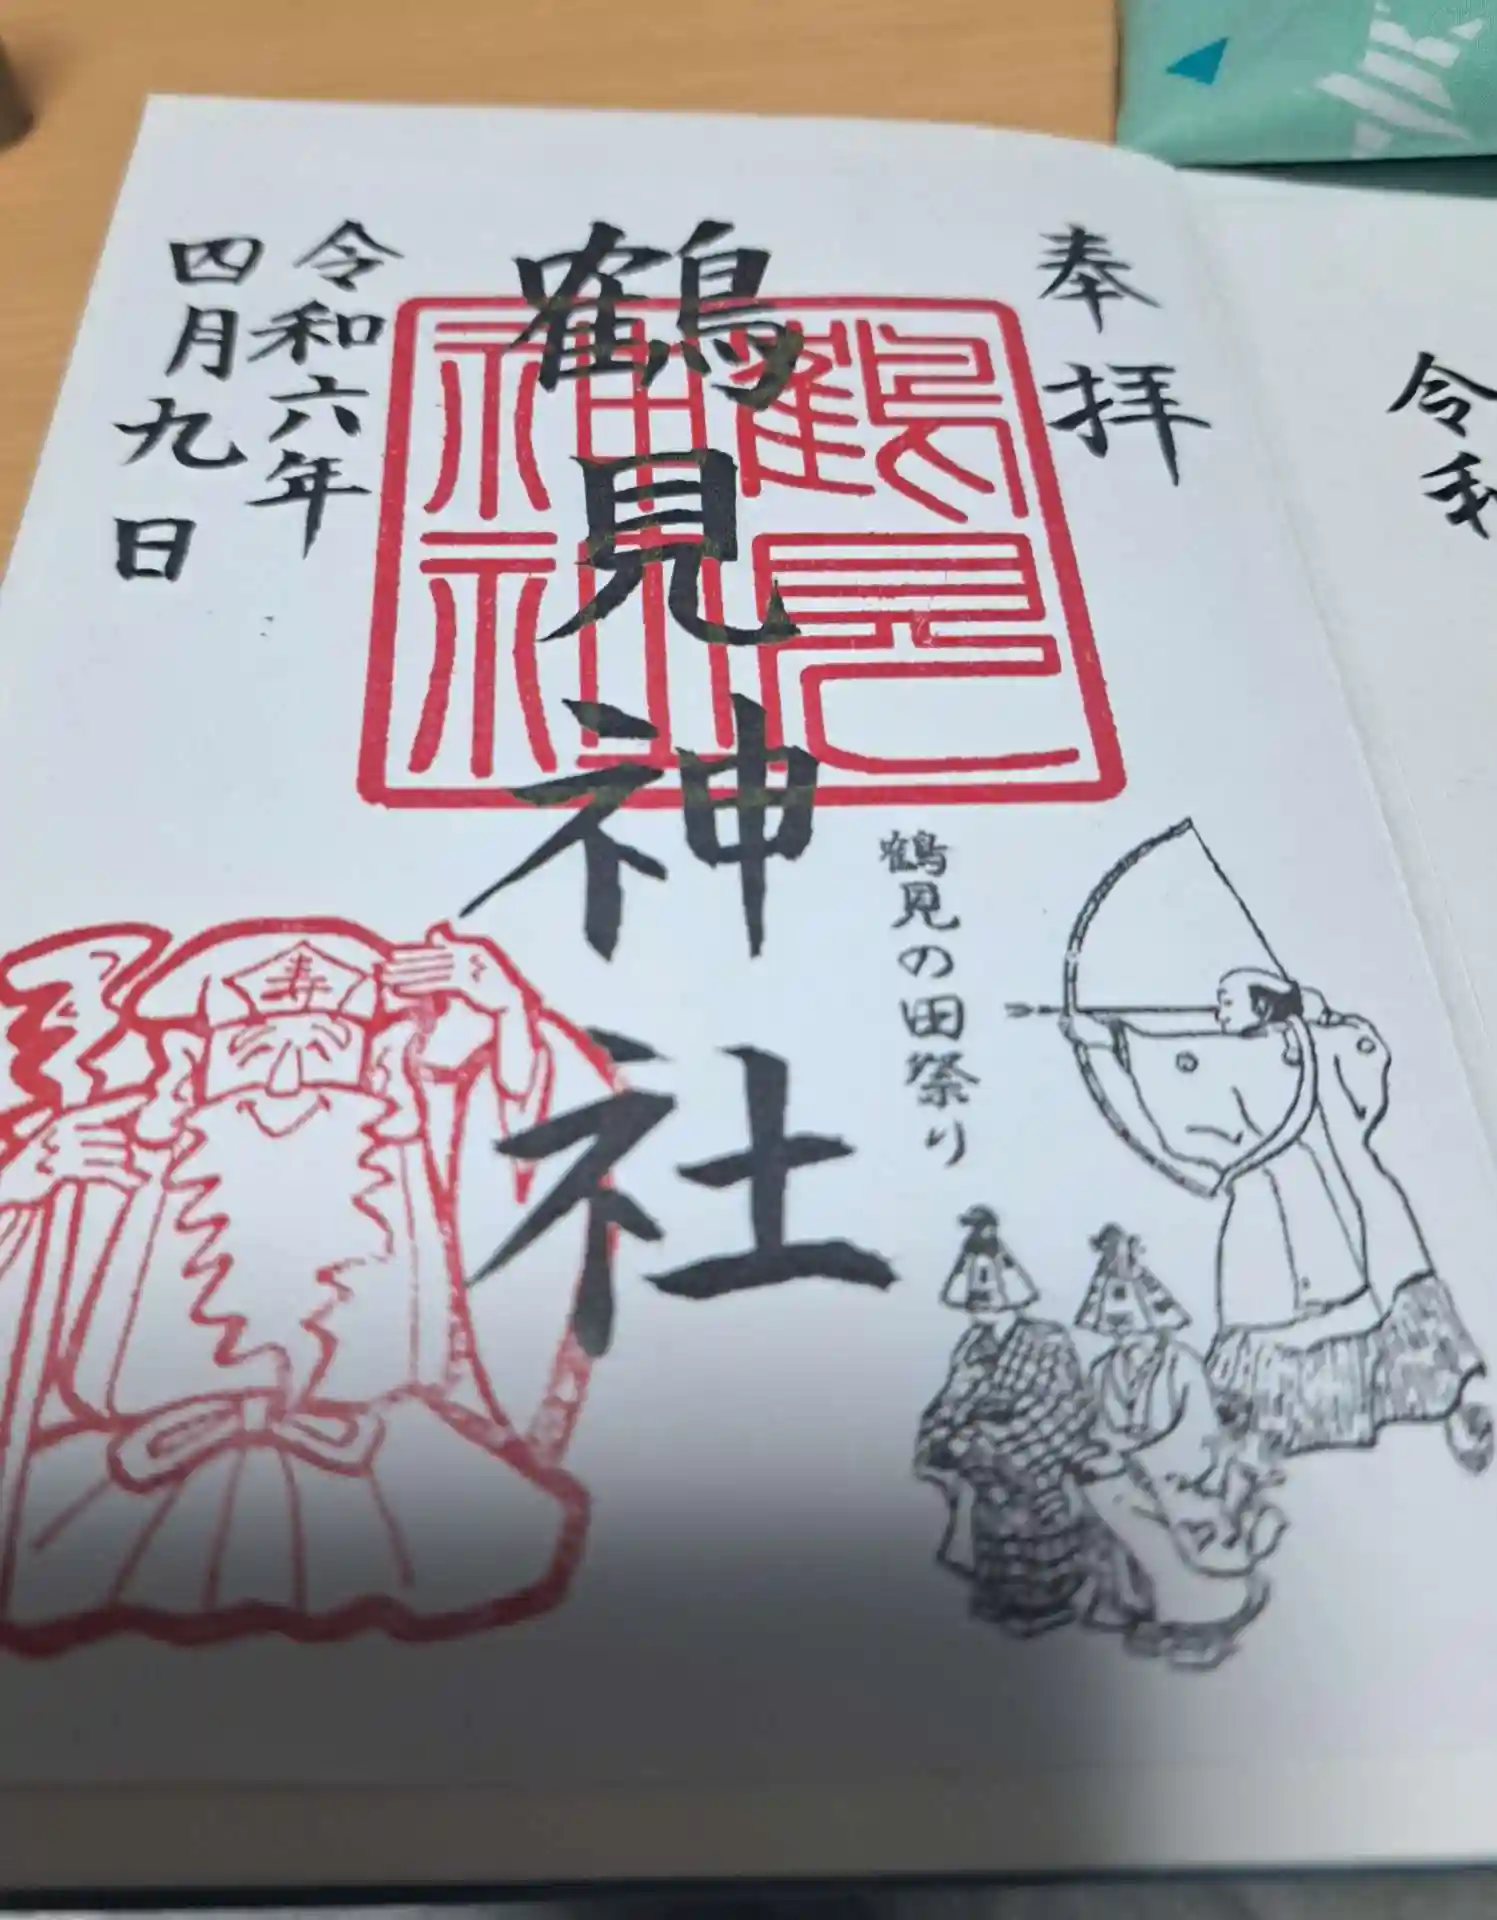 令和
奉拝
鶴見神社
鶴見神社
鶴見の田祭り
寿
令和六年
四月九日